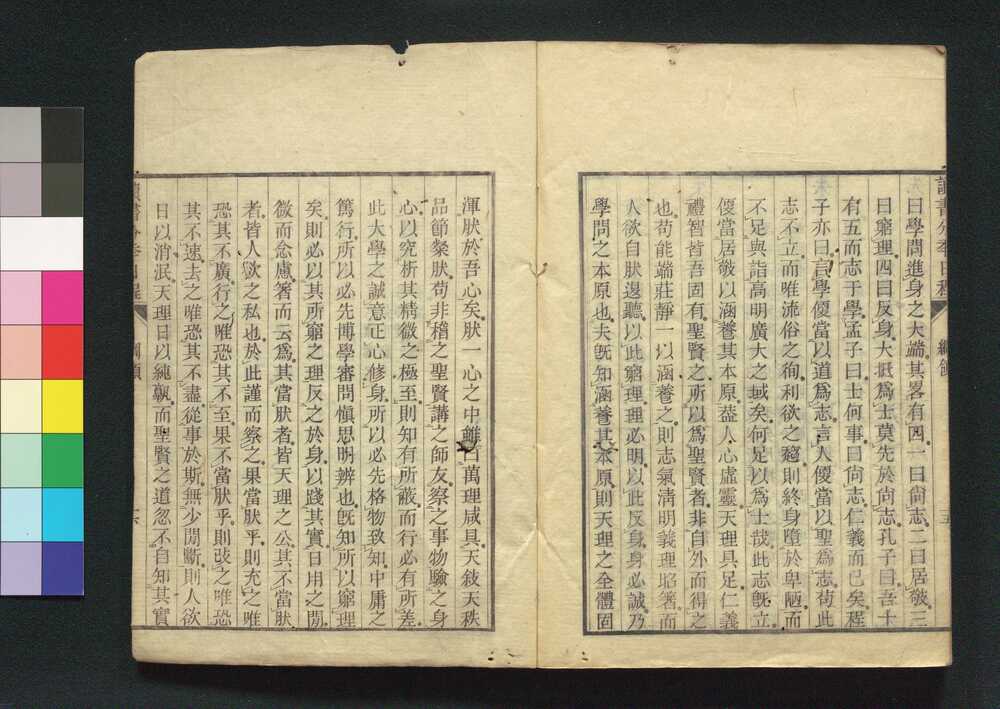 曰學問進身之大端其畧有四一曰尙志二曰居敬三
曰窮理四曰反身大抵爲士莫先於尙志孔子曰吾十
有五而志于學孟子曰士何事曰尙志仁義而已矣程
子亦曰言學便當以道爲志言人便當以聖爲志苟此
志不立而唯流俗之徇利欲之趨則終身墮於卑陋而
不足與詣高明廣大之域矣何足以爲士哉此志旣立
便當居敬以涵養其本原葢人心虛靈天理具足仁義
禮智皆吾固有聖賢之所以爲聖賢者非自外而得之
也苟能端莊靜一以涵養之則志氣淸明義理昭著而
人欲自肰退聽以此窮理理必明以此反身身必誠乃
學問之本原也夫旣知涵養其本原則天理之全體固
渾肰於吾心矣肰一心之中雖曰萬理咸具天敘天秩
品節粲肰苟非稽之聖賢講之師友察之事物驗之身
心以究析其精微之極至則知有所蔽而行必有所差
此大學之誠意正心修身所以必先格物致知中庸之
篤行所以必先博學審問愼思明辨也旣知所以窮理
矣則必以其所窮之理反之於身以踐其實日用之閒
微而念慮著而云爲其當肰者皆天理之公其不當肰
者皆人欲之私也於此謹而察之果當肰乎則充之唯
恐其不廣行之唯恐其不至果不當肰乎則改之唯恐
其不速去之唯恐其不盡從事於斯無少閒斷則人欲
日以消泯天理日以純孰而聖賢之道忽不自知其實
讀書分年日程
綱領
五
六